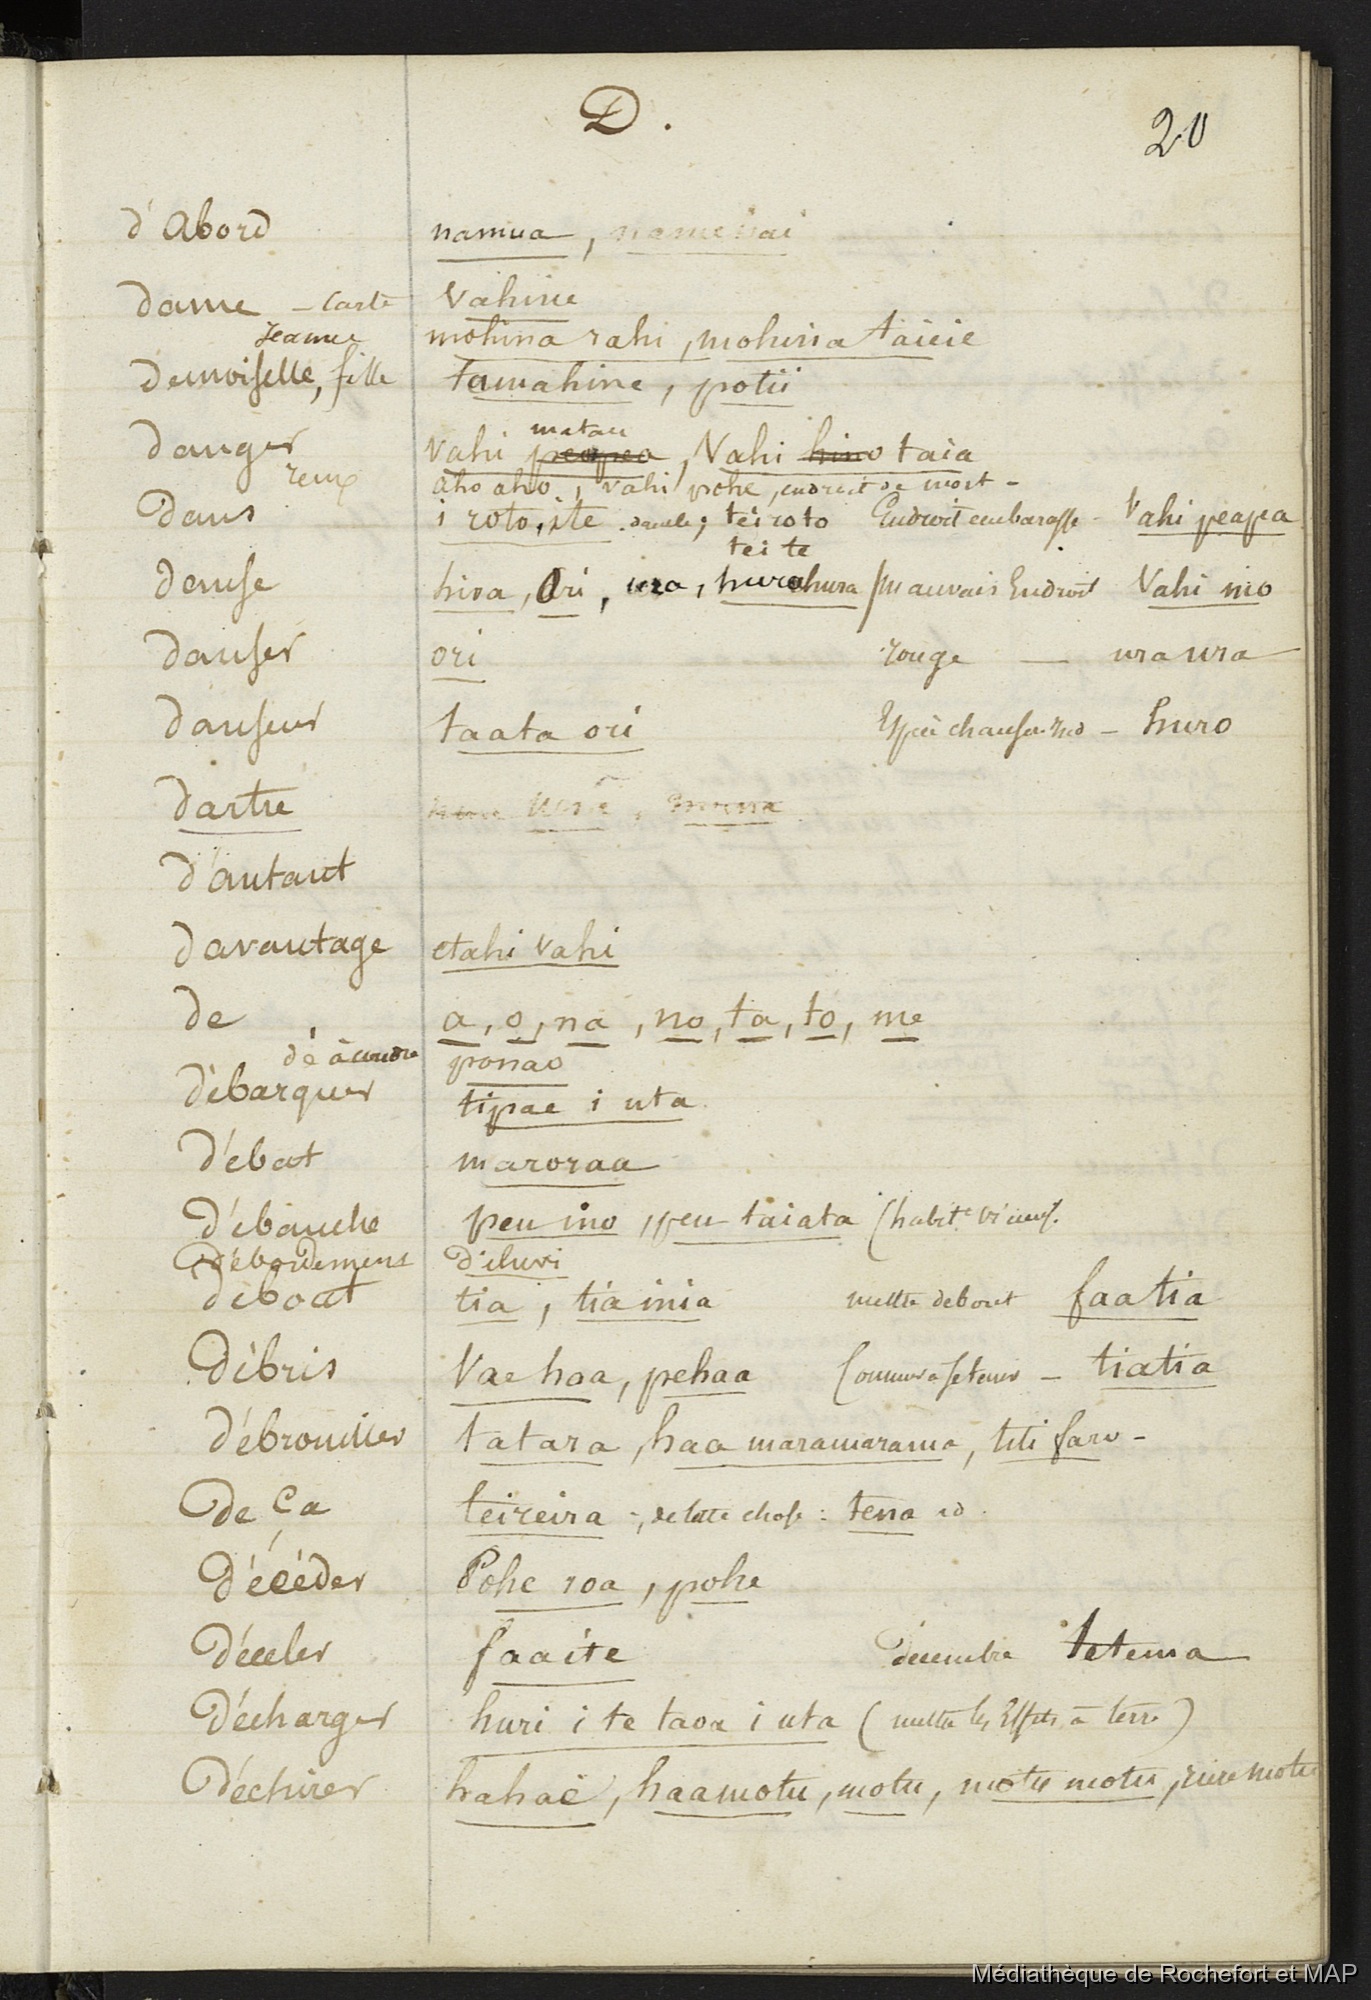 D.
20
d'Abord namua, nameiiai
dame - Carte Vahine
Jeanne mohina rahi, mohina taieie
demoiselle, fille tamahine, potii
matau
danger Vahi peapea, Vahi hino taia
reux aho aho, vahi pohe, endroit de mort -
Dans i roto, ite . dans le; tei roto Endroit embarasse - Vahi peapea
tei te
danse hiva, Ori, ura, hurahura / mauvais Endroit Vahi ino
danser ori rouge — ura ura
danseur taata ori - huro
dartre
d'autant
davantage etahi vahi
de a, o, na, no, ta, to, me
dé à coudre ponao
débarquer tipae i uta
Débat maroraa
Débauche peu ino, peu taiata (habit.e vicieuse.
Débordement Diluvi
debout tia, tia inia mettre debout faatia
Débris Vae haa, pehaa - tiatia
débrouiller tatara, haa maramarama, titi faro -
De Ça teireira -, de cette chose : tena id.
Décéder Pohe roa, pohe
Déceler faaite décembre Tetema
Décharger huri i te taoa i uta (mettre les Effets à terre)
Déchirer hahaë, haamotu, motu, motu motu, rure motu
Médiathèque de Rochefort et MAP